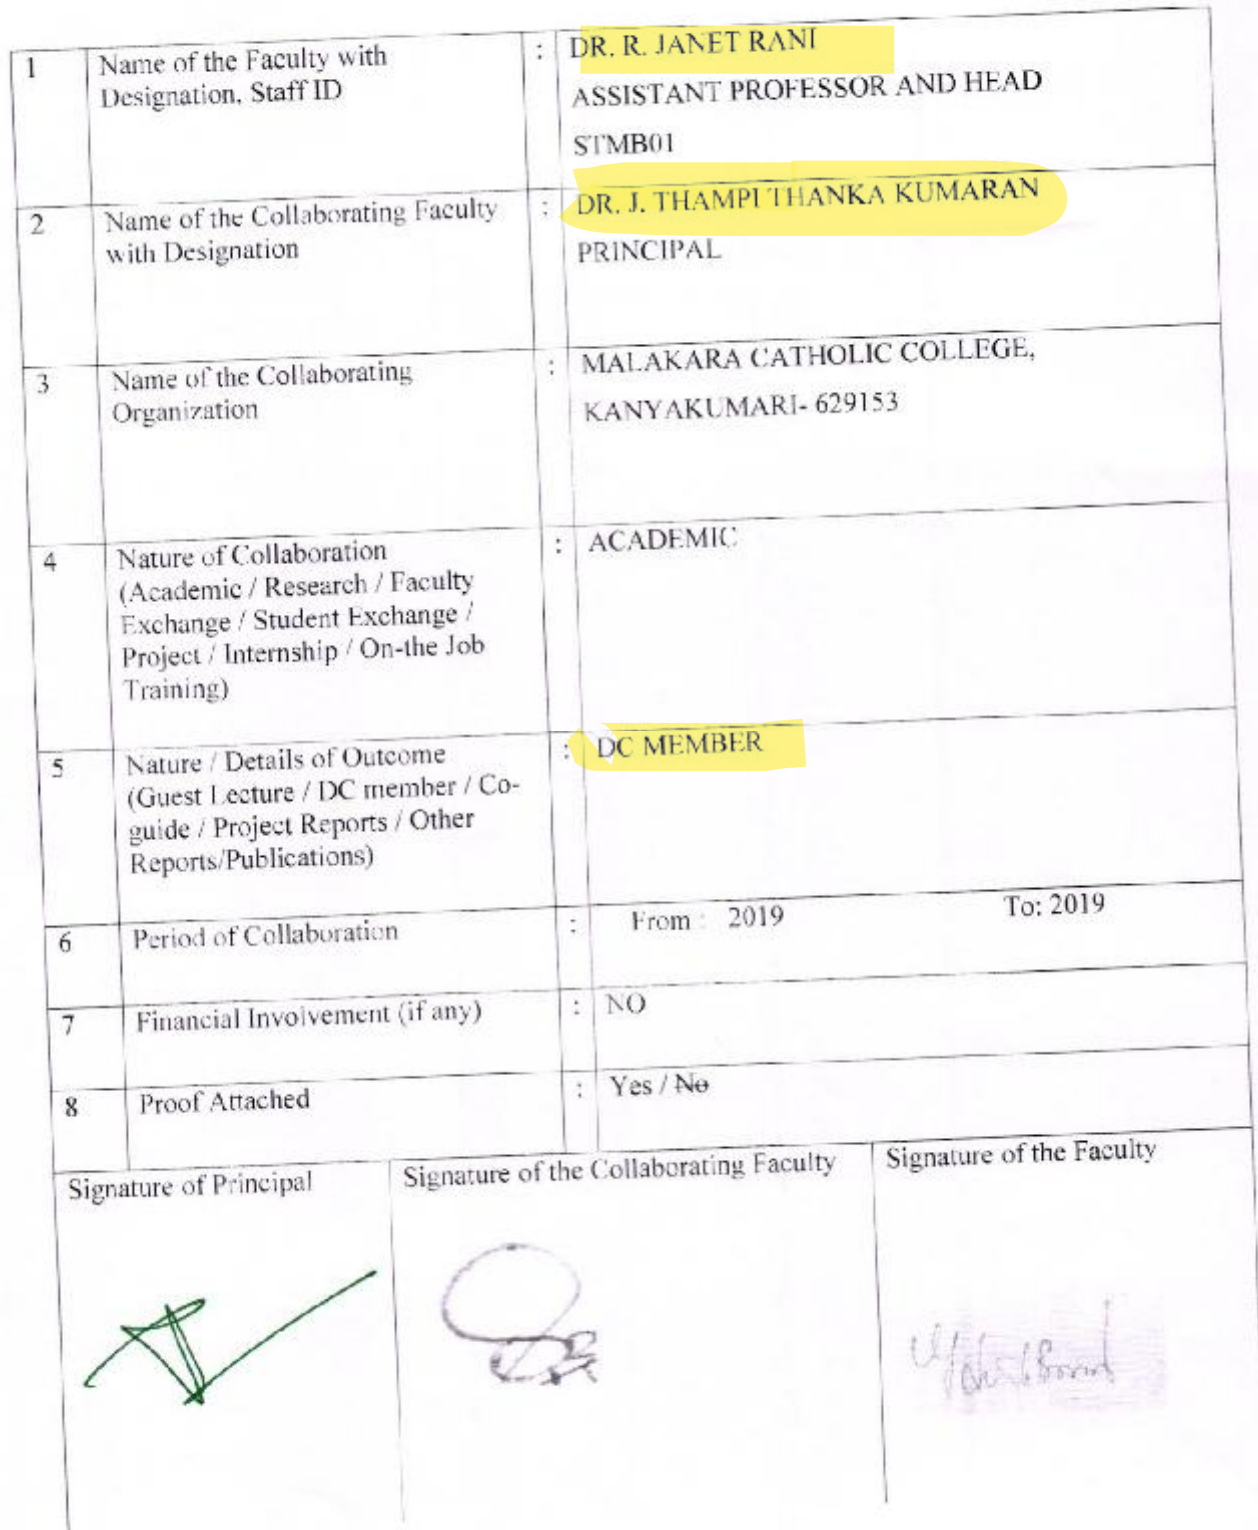 1 Name of the Faculty with : DR. R. JANET RANI
Designation, Staff ID ASSISTANT PROFESSOR AND HEAD
STMB01
2 Name of the Collaborating Faculty : DR. J. THAMPI THANKA KUMARAN
with Designation PRINCIPAL
3 Name of the Collaborating : MALAKARA CATHOLIC COLLEGE,
Organization KANYAKUMARI- 629153
4 Nature of Collaboration : ACADEMIC
(Academic / Research / Faculty
Exchange / Student Exchange /
Project / Internship / On-the Job
Training)
5 Nature / Details of Outcome : DC MEMBER
(Guest Lecture / DC member / Co-
guide / Project Reports / Other
Reports/Publications)
6 Period of Collaboration : From : 2019 To: 2019
7 Financial Involvement (if any) : NO
8 Proof Attached : Yes / No
Signature of Principal Signature of the Collaborating Faculty Signature of the Faculty